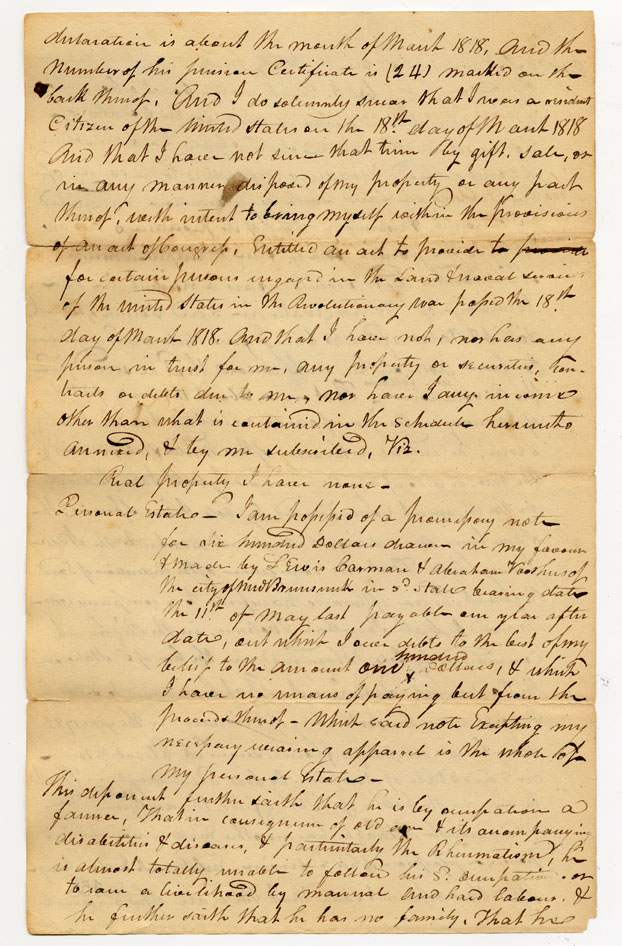 declaration is about the month of March 1818, And the
Number of his pension Certificate is (24) marked on the
back thereof. And I do solemnly swear that I was a resident
Citizen of the United States on the 18th day of March 1818
And that I have not since that time by gift, sale, or
in any manner disposed of my property or any part
thereof, with intent to bring myself within the provisions
of an act of Congress, Entitled an act to provide to provide
for certain persons engaged in the Land & naval service
of the United States in the Revolutionary war passed the 18th
day of March 1818. And that I have not, nor has any
person in trust for me, any property or securities, Con-
tracts or debts due to me, nor have I any income
other than what is contained in the schedule hereunto
annexed, & by me subscribed, Viz.
Real property I have none -
Personal Estate - I am possessed of a promissory note
for six hundred Dollars drawn in my favour
& made by Lewis Carman & Abraham Voorhees of
the city of New Brunswick in sd. State bearing date
the 11th of May last payable one year after
date, out which I owe debts to the best of my
belief to the amount one hundred Dollars, & which
I have no means of paying but from the
proceeds thereof - Which said note Excepting my
necessary wearing apparel is the whole of
my personal Estate -
This deponent further saith that he is by occupation a
farmer, That in consequence of old age & its accompanying
disabilities & diseases, & particularly the Rheumatism, he
is almost totally unable to follow his sd. occupation or
to earn a livelihood by manual and hard labour. &
he further saith that he has no family. That he